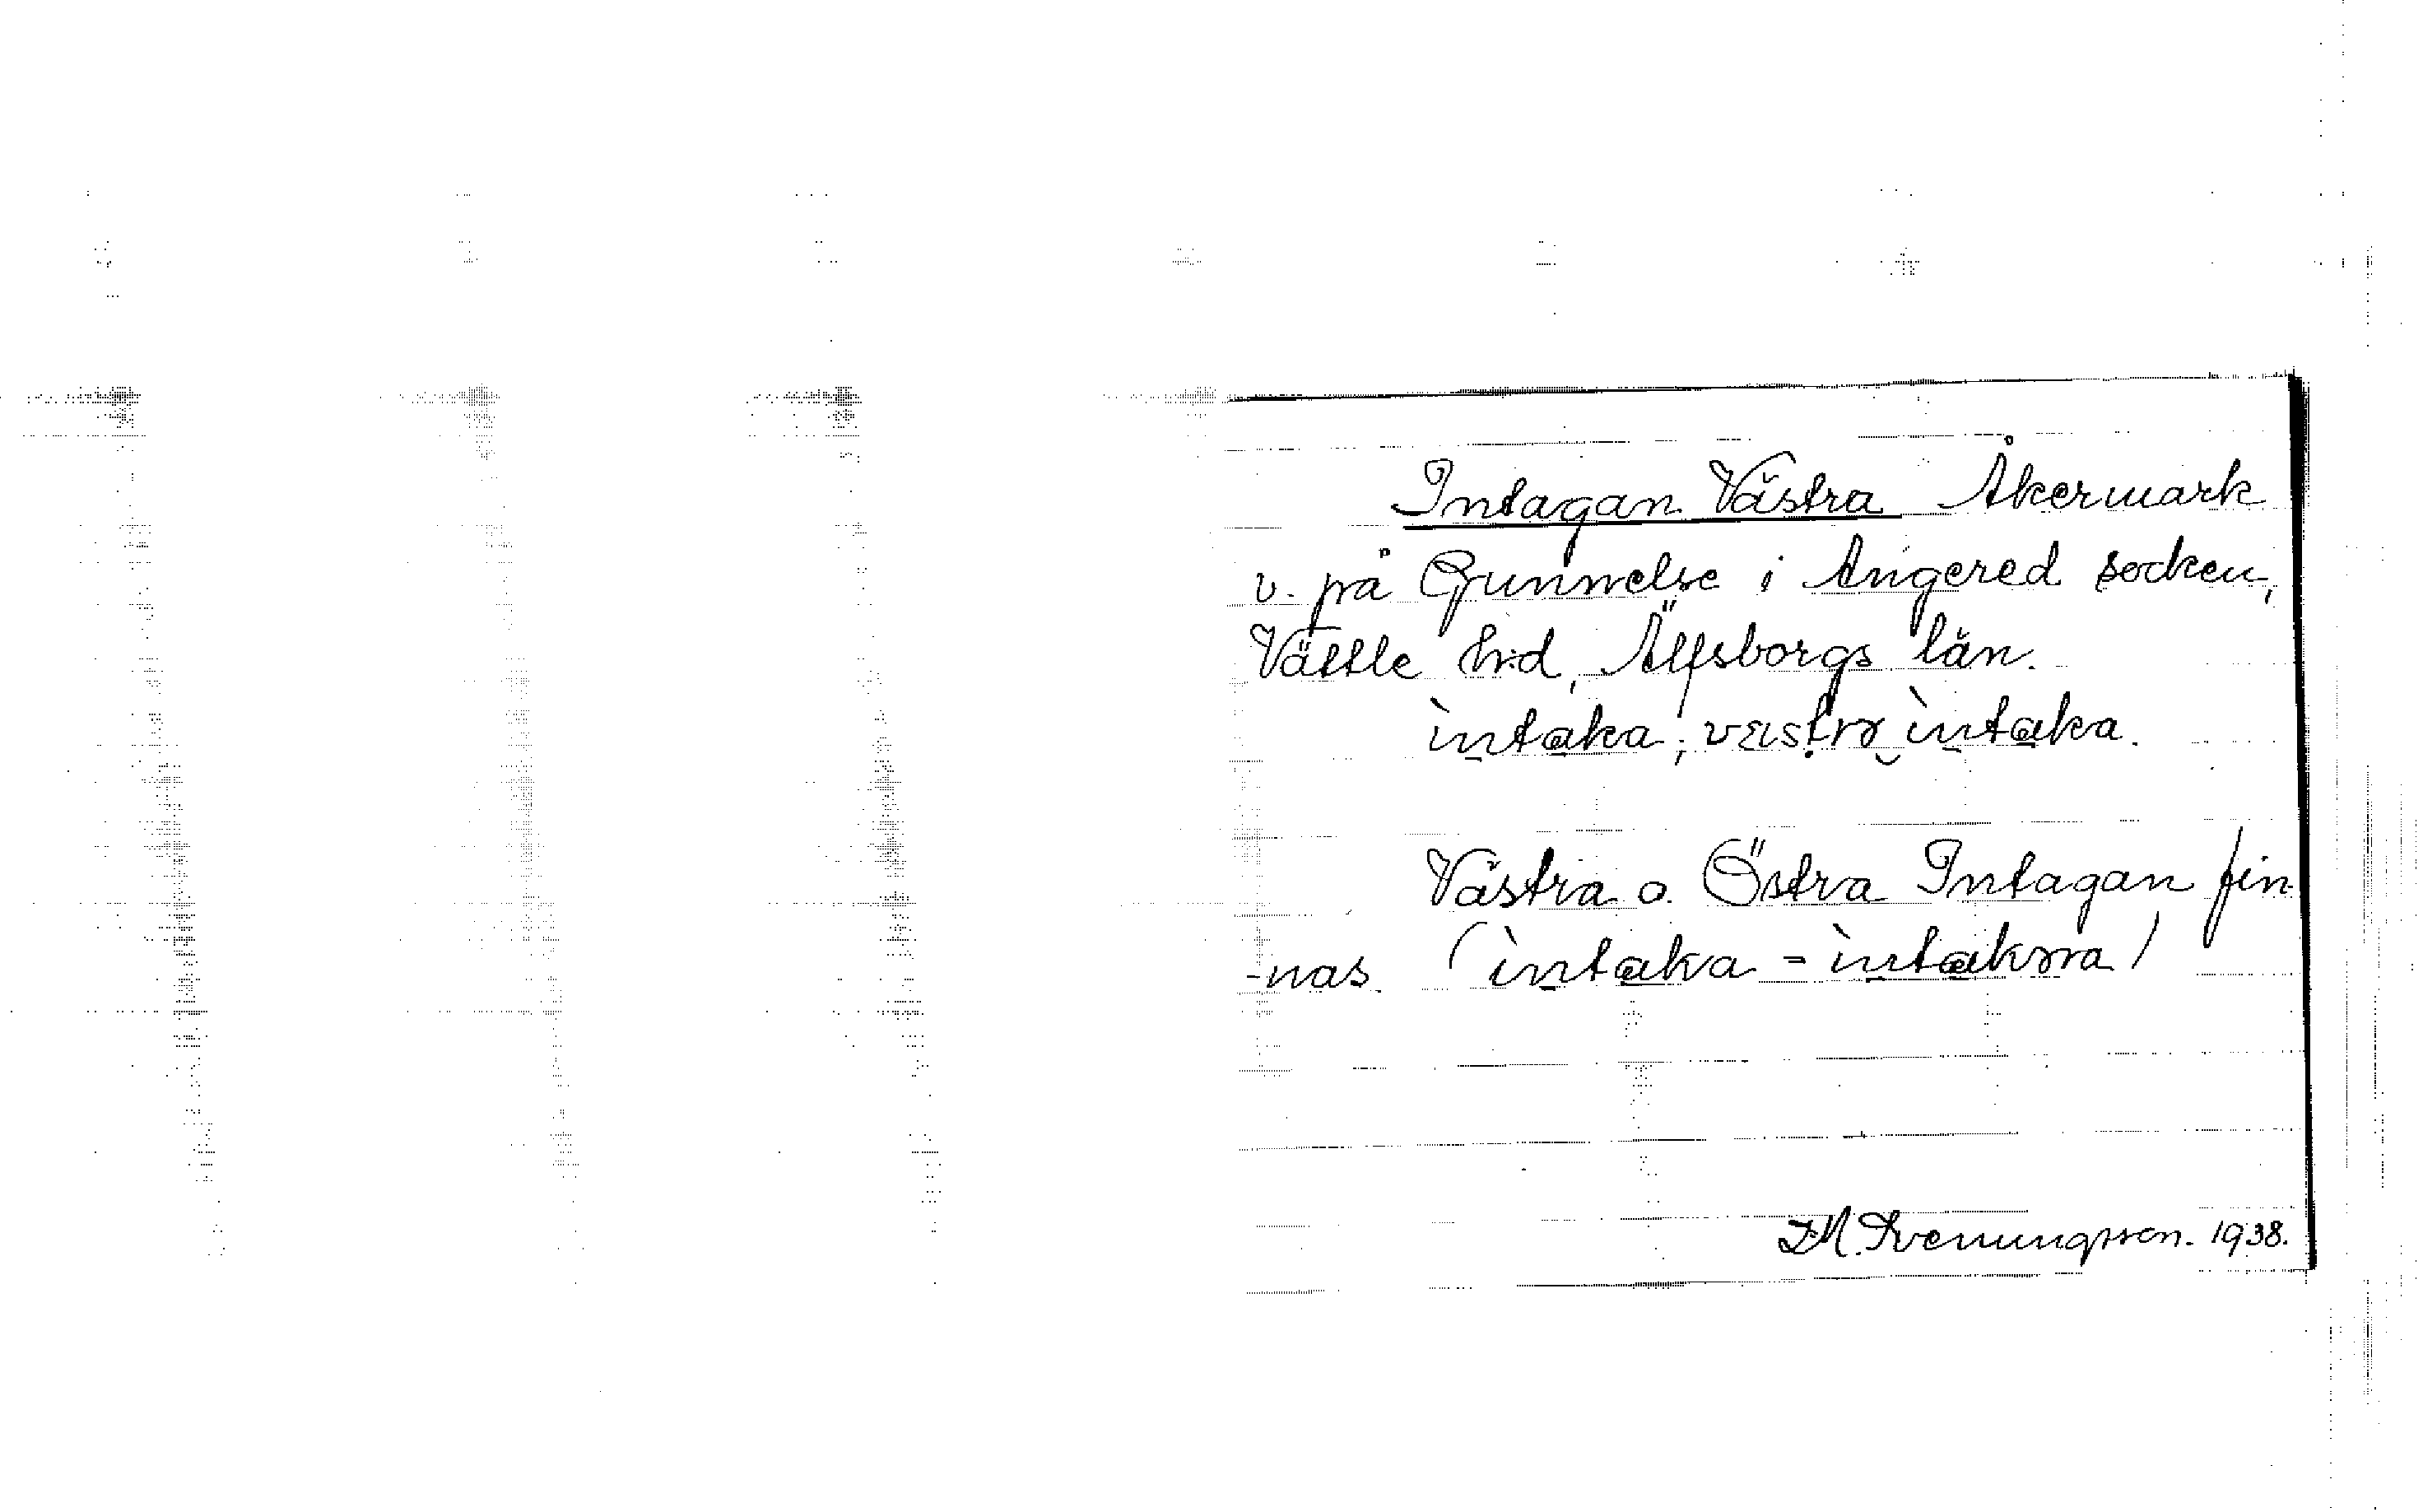 Intagan Västra Åkermark
v. på Gunnelse i Angered socken,
Vättle h:d, Älfsborgs län.
ìntaka; væstrə ìntaka.
Västra o. Östra Intagan fin-
-nas. (ìntaka - ìntakəra)
1938.